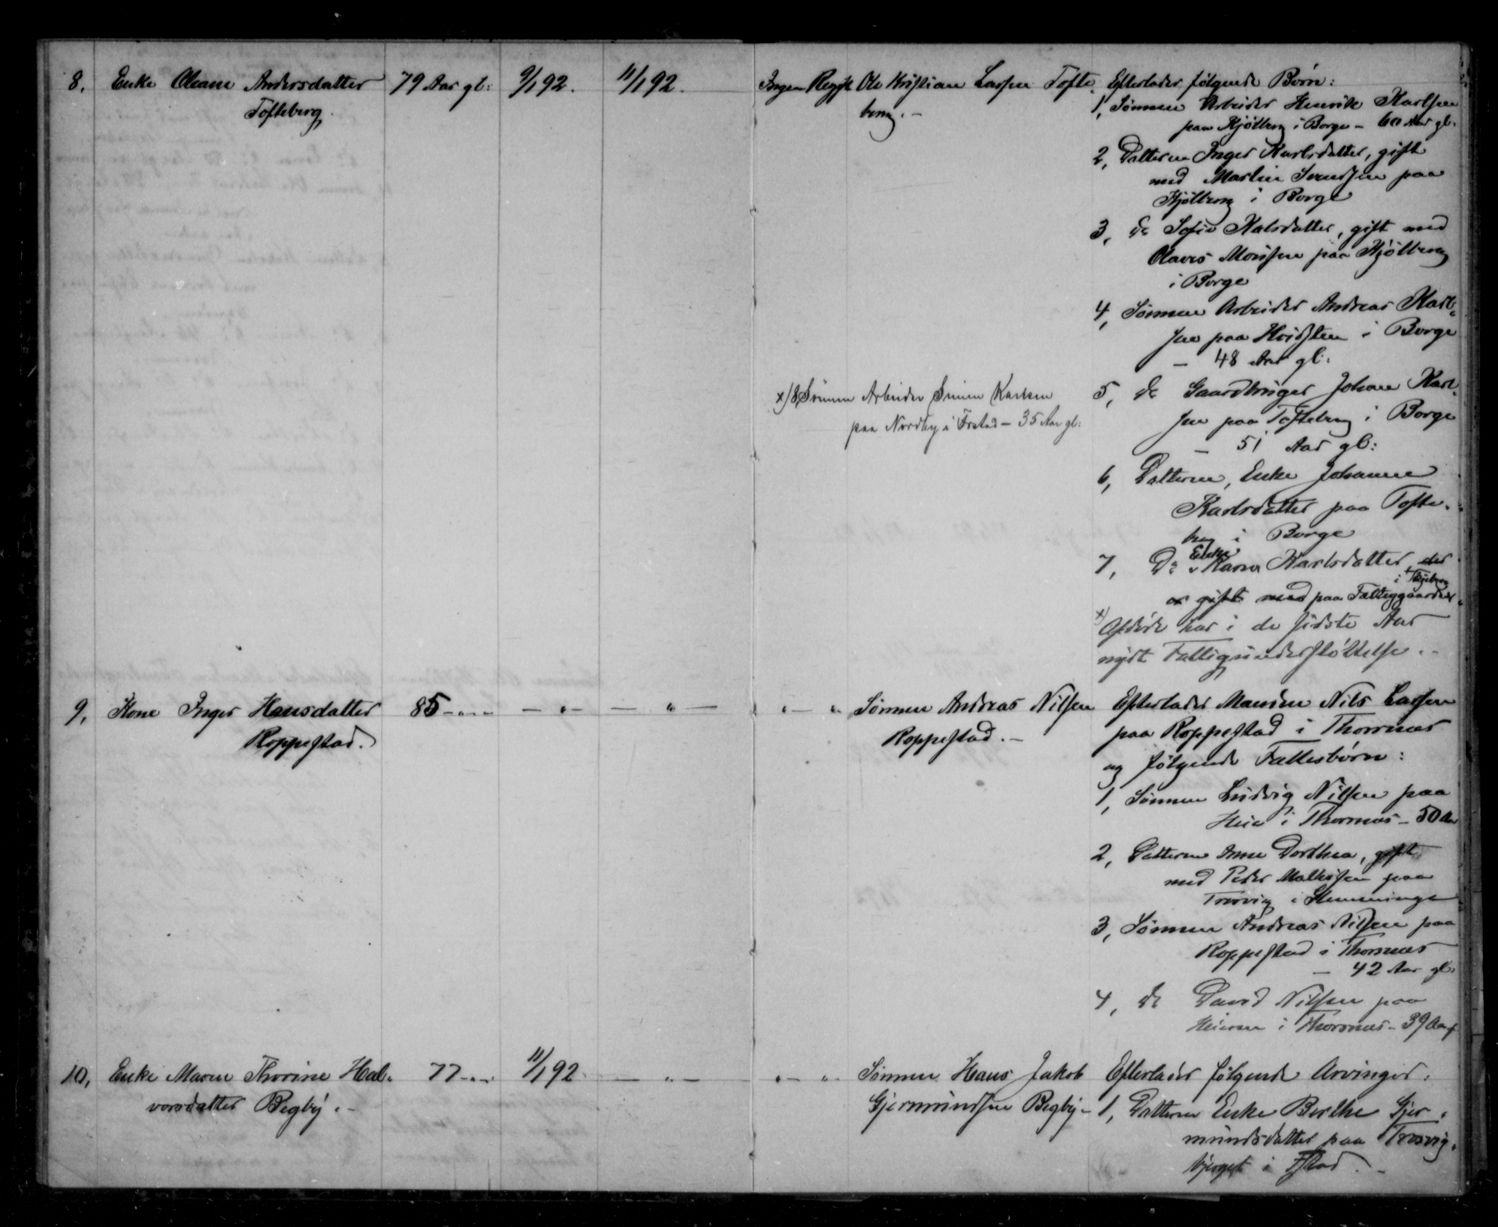 8, Enke Oleane Andersdatter 79 Aar gl: 9/1 92. 11/1 92. Ingen Ole Kristian Larsen Tofte-
Tofteberg. berg. –
Efterlader følgende Børn:
1, Sønnen Arbeider Henrik Karlsen
paa Kjølberg i Borge – 60 Aar gl.
2, Datteren Inger Karlsdatter, gift
med Martin Svendsen paa
Kjølberg i Borge
3, do Sofie Kalsdatter, gift med
Olaves paa Kjølberg
i Borge
4, Sønnen Arbeider Andreas Karl-
sen paa Hvidsten i Borge
– 48 Aar gl:
x) 8, Sønnen Arbeider Simen Karlsen
paa Nordby i Frstad – 35 Aar gl:
5, do Gaardbruger Johan Karl-
sen paa Tofteberg i Borge
– 51 Aar gl:
6, Datteren, Enke Johanne
Karlsdatter paa Tofte-
berg i Borge
7, Do Enke Karen Karlsdatter, der
er gift med paa Fattiggaarden
i Thjeberg
x) Afdøde har i de sidste Aar
nydt Fattigunderstøttelse. –
9, Kone Inger Hansdatter 85 – „ – – „ – – „ – „ – „ Sønnen Andreas Nilsen
Roppestad. Roppestad. –
Efterlader Manden Nils Larsen
paa Roppestad i Thorsnæs
og følgende Fællesbørn:
1, Sønnen Ludvig Nilsen paa
Heie i Thorsnæs – 50 Aar
2, Datteren Anne Dorthea, gift
med Peder Mathisen paa
Torsvig i
3, Sønnen Andreas Nilsen paa
Roppestad i Thorsnæs
– 42 Aar gl:
4, do David Nilsen paa
Heien i Thorsnæs – 39 Aar gl
10, Enke Maren Thorine Hal- 77 – „ – 11/1 92. – „ – „ – „ Sønnen Hans Jakob
vorsdatter Begby. – Gjermundsen Begby –
Efterlader følgende Arvinger:
1, Datteren Enke Berthe Gjer-
mundsdatter paa Trosvig-
bjerget i Fstad. –